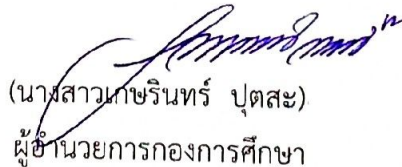 (นางสาวเกษรินทร์ ปุตสะ)
ผู้อำนวยการกองการศึกษา